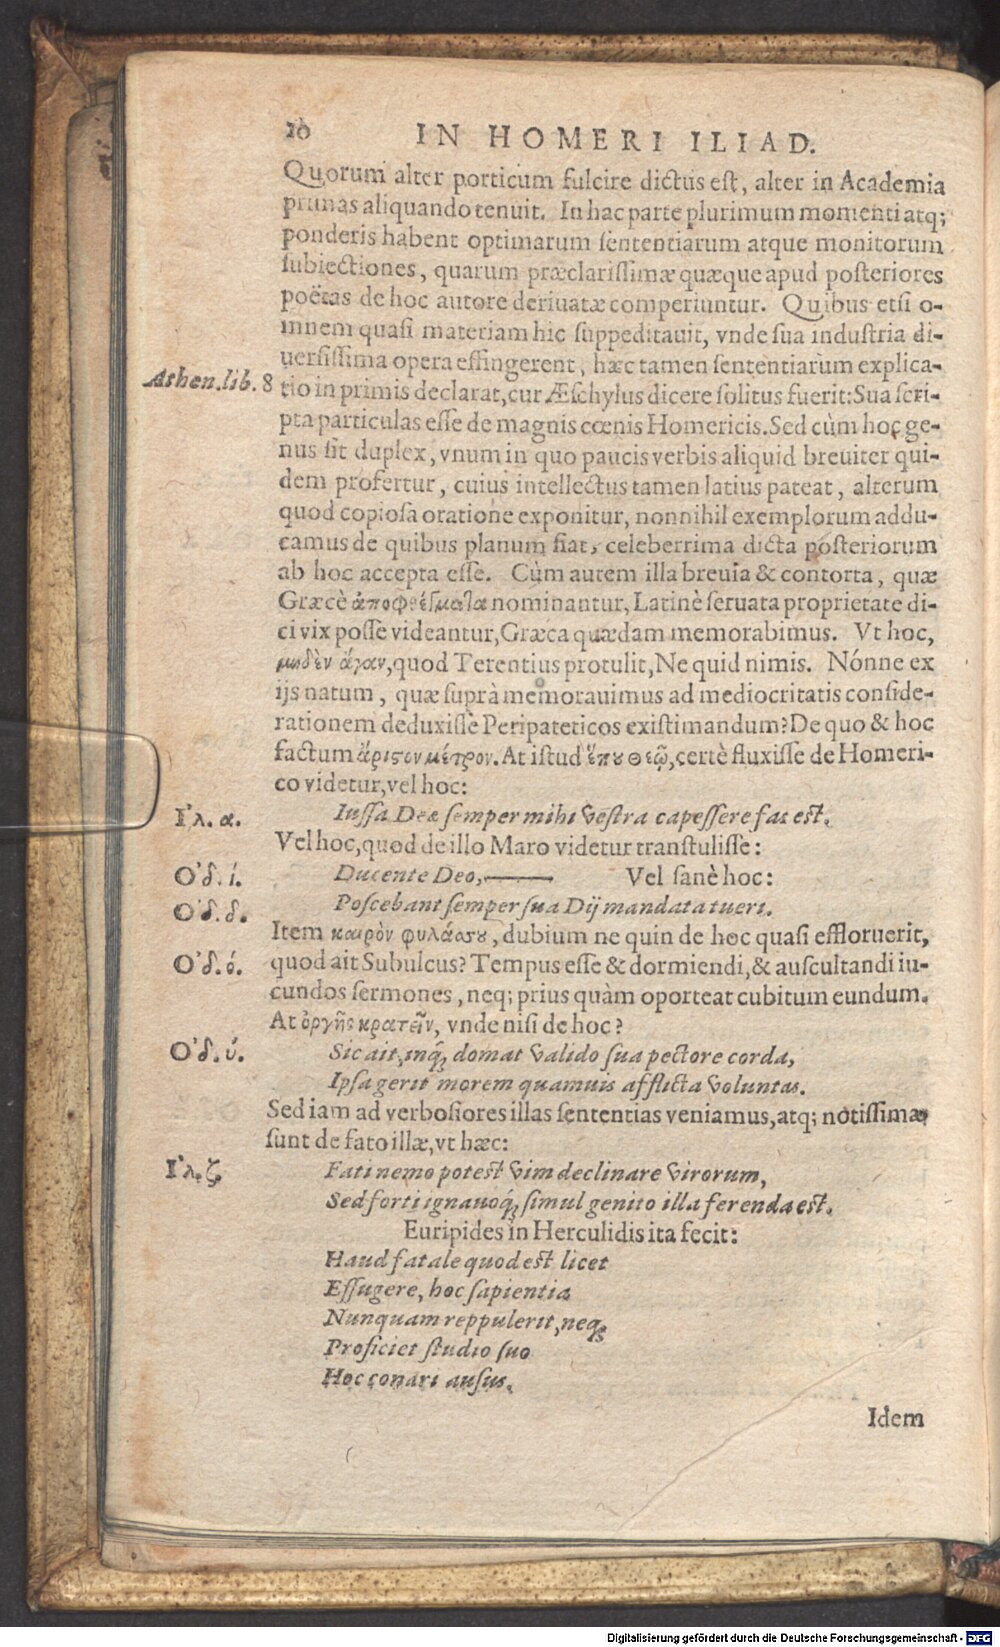 10 IN HOMERI ILIAD.
Quorum alter porticum fulcire dictus est, alter in Academia
primas aliquando tenuit. In hac parte plurimum momenti atq;
ponderis habent optimarum sententiarum atque monitorum
subiectiones, quarum præclarissimæ quæque apud posteriores
poëtas de hoc autore deriuatæ comperiuntur. Quibus etsi o-
mnem quasi materiam hic suppeditauit, vnde sua industria di-
uersissima opera effingerent, hæc tamen sententiarum explica-
Athen. lib. 8
tio in primis declarat, cur Æschylus dicere solitus fuerit: Sua scri-
pta particulas esse de magnis cœnis Homericis. Sed cùm hoc ge-
nus sit duplex, vnum in quo paucis verbis aliquid breuiter qui-
dem profertur, cuius intellectus tamen latius pateat, alterum
quod copiosa oratione exponitur, nonnihil exemplorum addu-
camus de quibus planum fiat, celeberrima dicta posteriorum
ab hoc accepta esse. Cùm autem illa breuia & contorta, quæ
Græcè ἀποφθέγματα nominantur, Latinè seruata proprietate di-
ci vix posse videantur, Græca quædam memorabimus. Vt hoc,
μηδὲν ἄγαν, quod Terentius protulit, Ne quid nimis. Nónne ex
ijs natum, quæ suprà memorauimus ad mediocritatis conside-
rationem deduxisse Peripateticos existimandum? De quo & hoc
factum ἄριστον μέτρον. At istud ἕπου θεῷ, certè fluxisse de Homeri-
co videtur, vel hoc:
Ἰλ. α.
Iussa Deæ semper mihi vestra capessere fas est.
Vel hoc, quod de illo Maro videtur transtulisse:
Ὀδ. ί.
Ducente Deo,—— Vel sanè hoc:
Ὀδ. δ.
Poscebant semper sua Dij mandata tueri.
Item καιρὸν φυλάσσου, dubium ne quin de hoc quasi effloruerit,
Ὀδ. ό.
quod ait Subulcus? Tempus esse & dormiendi, & auscultandi iu-
cundos sermones, neq; prius quàm oporteat cubitum eundum.
At ὀργῆς κρατεῖν, vnde nisi de hoc?
Ὀδ. ύ.
Sic ait, inq; domat valido sua pectore corda,
Ipsa gerit morem quamuis afflicta voluntas.
Sed iam ad verbosiores illas sententias veniamus, atq; notissimæ
sunt de fato illæ, vt hæc:
Ἰλ. ζ.
Fati nemo potest vim declinare virorum,
Sed forti ignauoq; simul genito illa ferenda est.
Euripides in Herculidis ita fecit:
Haud fatale quod est licet
Effugere, hoc sapientia
Nunquam reppulerit, neq;
Proficiet studio suo
Hoc conari ausus.
Idem
Digitalisierung gefördert durch die Deutsche Forschungsgemeinschaft - DFG